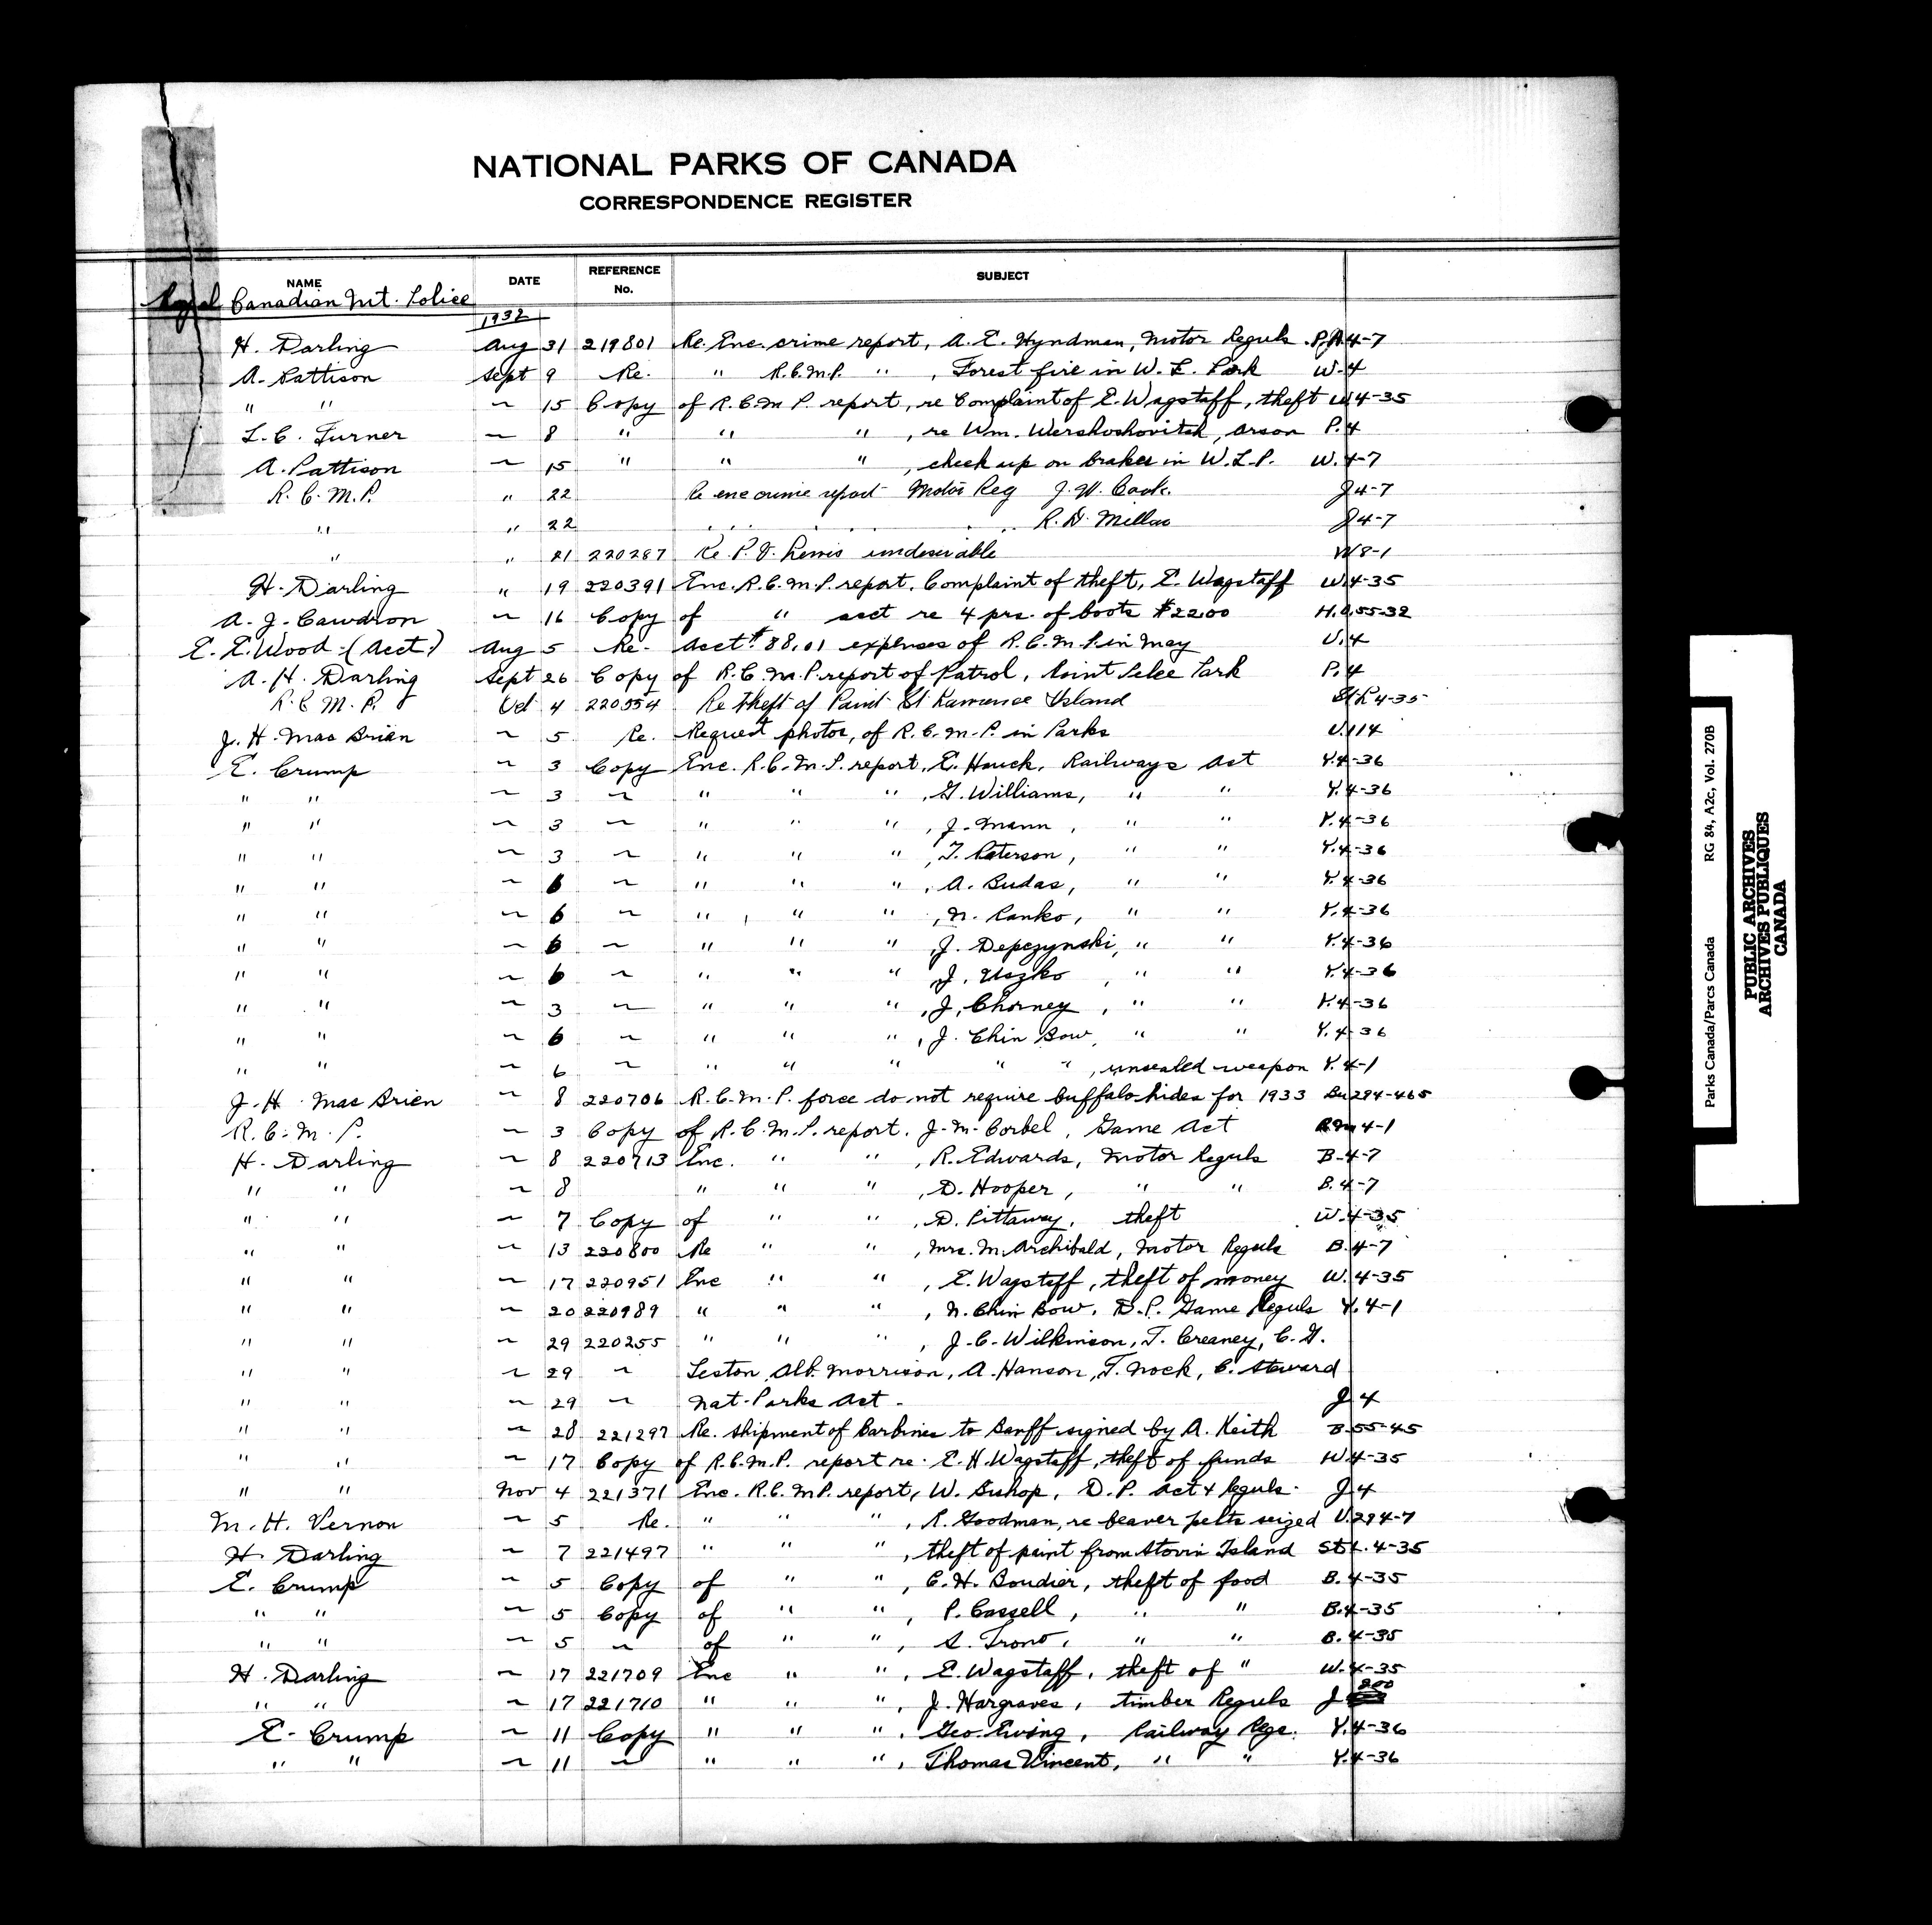 NATIONAL PARKS OF CANADA
CORRESPONDENCE REGISTER
NAME DATE REFERENCE No. SUBJECT
Royal Canadian Mt. Police
1932
H. Darling Aug 31 219801 Re. Enc. crime report, A. E. Hyndman, Motor Reguls. P.A. 4-7
A. Pattison Sept 9 Re. " R.C.M.P. " , Forest fire in W. L. Park W. 4
" " ~ 15 Copy of R.C.M.P. report, re Complaint of E. Wagstaff, theft W. 4-35
L. C. Turner ~ 8 " " " , re Wm. Wershoshovitch, arson P. 4
A. Pattison ~ 15 " " " , check up on brakes in W.L.P. W. 4-7
R.C.M.P. " 22 Re enc crime report Motor Reg J. W. Cook. J 4-7
" " 22 . . . . . R. D. Millar J 4-7
" " 21 220287 Re. P. J. Lewis undesirable W 8-1
H. Darling " 19 220391 Enc. R.C.M.P. report. Complaint of theft, E. Wagstaff W. 4-35
A. J. Cawdron ~ 16 Copy of " acct re 4 prs. of boots $22.00 H.Q. 55-32
E. E. Wood (Acct.) Aug 5 Re. Acct. $88.01 expenses of R.C.M.P. in May U. 4
A. H. Darling Sept 26 Copy of R.C.M.P. report of Patrol, Point Pelee Park P. 4
R.C.M.P. Oct 4 220554 Re theft of Paint St Lawrence Island St. L 4-35
J. H. MacBrien ~ 5 Re. Request photos, of R.C.M.P. in Parks U. 114
E. Crump ~ 3 Copy Enc. R.C.M.P. report, E. Hauck, Railways Act Y. 4-36
" " ~ 3 ~ " " " , G. Williams, " " Y. 4-36
" " ~ 3 ~ " " " , J. Mann, " " Y. 4-36
" " ~ 3 ~ " " " , T. Paterson, " " Y. 4-36
" " ~ 6 ~ " " " , A. Budas, " " Y. 4-36
" " ~ 6 ~ " " " , N. Panko, " " Y. 4-36
" " ~ 6 ~ " " " , J. Depczynski, " " Y. 4-36
" " ~ 6 ~ " " " , J. Uszko, " " Y. 4-36
" " ~ 3 ~ " " " , J. Chorney, " " Y. 4-36
" " ~ 6 ~ " " " , J. Chin Bow, " " Y. 4-36
" " ~ 6 ~ " " " " " , unsealed weapon Y. 4-1
J. H. MacBrien ~ 8 220706 R.C.M.P. force do not require buffalo hides for 1933 Bu 294-465
R.C.M.P. ~ 3 Copy of R.C.M.P. report. J. M. Corbel, Game Act R.M 4-1
H. Darling ~ 8 220713 Enc. " " , R. Edwards, Motor Reguls B. 4-7
" " ~ 8 " " " , D. Hooper, " " B. 4-7
" " ~ 7 Copy of " " , D. Pittaway, theft W. 4-35
" " ~ 13 220800 Re " " , Mrs. M. Archibald, Motor Reguls B. 4-7
" " ~ 17 220951 Enc " " , E. Wagstaff, theft of money W. 4-35
" " ~ 20 220989 " " " , N. Chin Bow, D.P. Game Reguls Y. 4-1
" " ~ 29 220255 " " " , J. C. Wilkinson, T. Creaney, C. G.
" " ~ 29 ~ Leston, Alb. Morrison, A. Hanson, T. Nock, C. Steward
" " ~ 29 ~ Nat. Parks Act - J 4
" " ~ 28 221297 Re. shipment of Carbines to Banff signed by A. Keith B. 55-45
" " ~ 17 Copy of R.C.M.P. report re. E. H. Wagstaff, theft of funds W. 4-35
" " Nov 4 221371 Enc. R.C.M.P. report, W. Bishop, D.P. Act & Reguls. J 4
M. H. Vernon ~ 5 Re. " " " , R. Goodman, re beaver pelts seized U. 294-7
H. Darling ~ 7 221497 " " " , theft of paint from Stovin Island St. L. 4-35
E. Crump ~ 5 Copy of " " , C. H. Boudier, theft of food B. 4-35
" " ~ 5 Copy of " " , P. Cassell, " " B. 4-35
" " ~ 5 ~ of " " , S. Trono, " " B. 4-35
H. Darling ~ 17 221709 Enc " " , E. Wagstaff, theft of " W. 4-35
" " ~ 17 221710 " " " , J. Hargraves, timber Reguls J 200
E. Crump ~ 11 Copy " " " , Geo. Ewing, Railway Regs. Y. 4-36
" " ~ 11 ~ " " " , Thomas Vincent, " " Y. 4-36
Parks Canada/Parcs Canada RG 84, A2c, Vol. 270B
PUBLIC ARCHIVES
ARCHIVES PUBLIQUES
CANADA